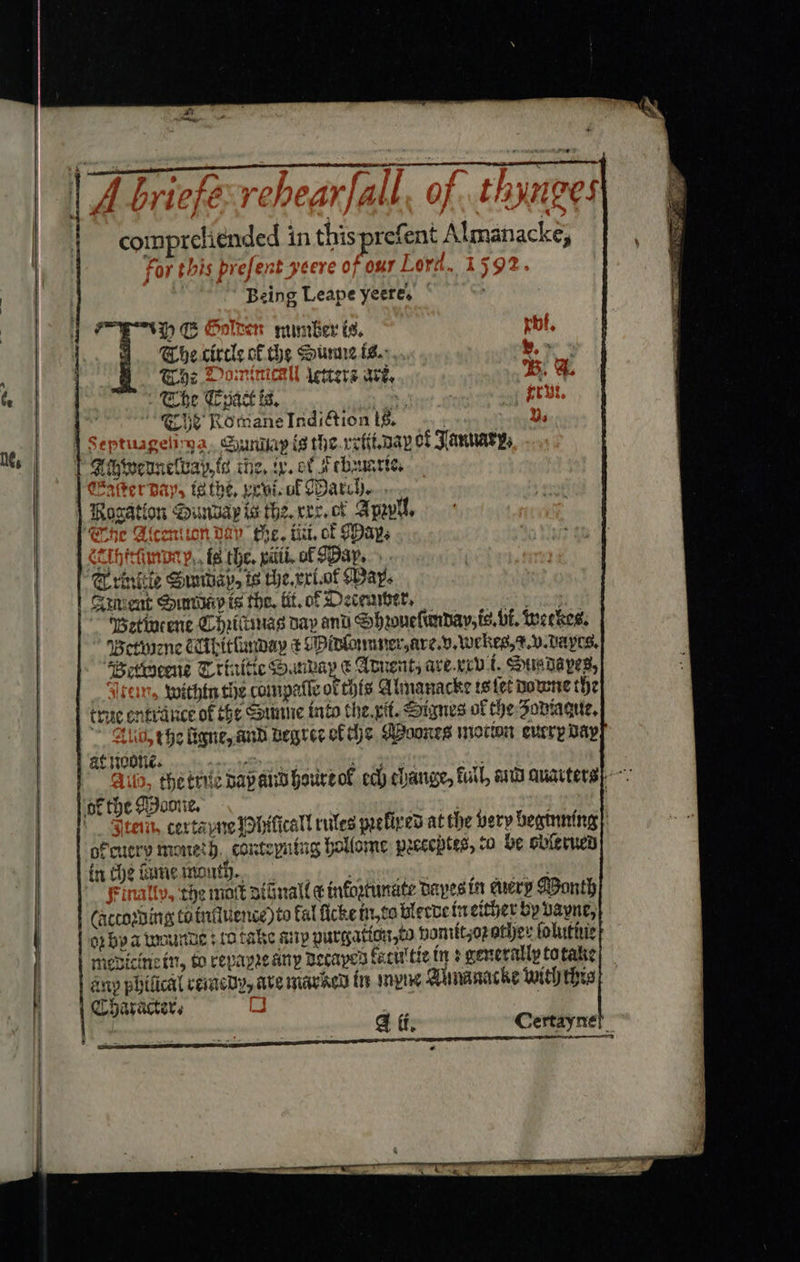 A briefe rehearſall, of thynges
comprehended in this preſent Almanacke,
for this preſent yeere of our Lord. 1592.
Being Leape yeere.
THE Golden number is. xvi.
The circle of the Sunne is. v.
The Dominicall letters are. B. A.
The Epact is. xxvi.
The Romane Indiction is. v.
Septuageſima Sunday is the xxiii. day of January.
Aſhwedneſday, is the. ix. of February.
Eaſter day, is the. xxvi. of March.
Rogation Sunday is the. xxx. of Apryll.
The Aſcention day the. iiii. of May.
Whitſunday, is the. xiiii. of May.
Trinitie Sunday, is the. xxi. of May.
Aduent Sunday is the. iii. of December.
Betweene Chriſtmas day and Shroueſunday, is. vi. weekes.
Betwene Whitſunday & Midſommer, are. v. wekes, &. v. dayes.
Betweene Trinitie Sunday & Aduent, are. xxvi. Sundayes,
Item, within the compaſſe of this Almanacke is ſet downe the
true entrance of the Sunne into the. xii. Signes of the Zodiaque.
Alſo, the ſigne, and degree of the Moones motion euery day
at noone.
Alſo, the true day and houre of ech change, full, and quarters
of the Moone.
Item, certayne Phiſicall rules prefixed at the very beginning
of euery moneth, conteyning holſome preceptes, to be obſerued
in the ſame month.
Finally, the moſt diſmall & infortunate dayes in euery Month
(according to influence) to fal ſicke in, to bleede in either by vayne,
or by a wounde: to take any purgation, to vomit, or other ſolutiue
medicine in, to repayre any decayed facultie in: generally to take
any phiſical remedy, are marked in myne Almanacke with this
Character. □
A ii. Certayne